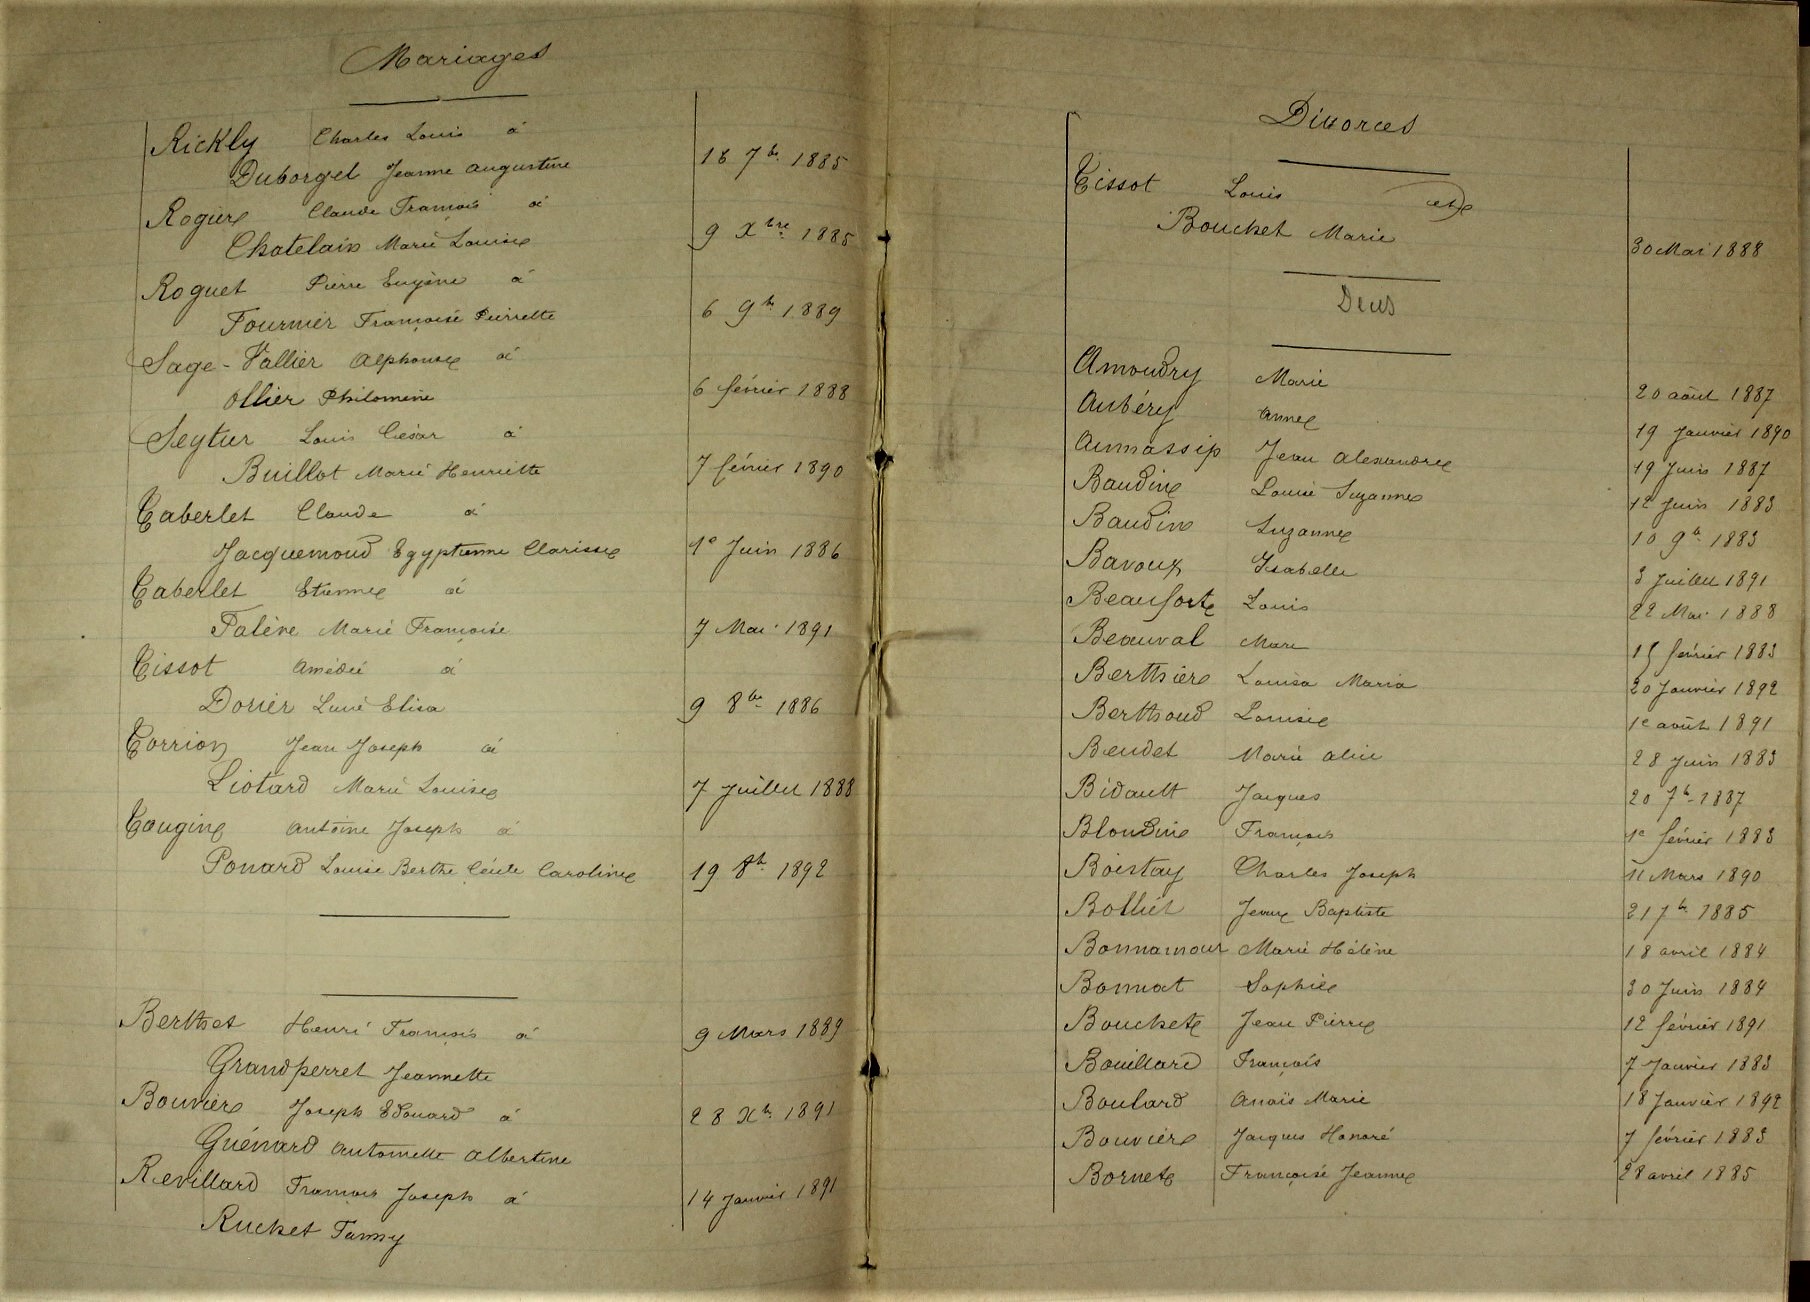 Mariages
Rickly Charles Louis à
Duborgel Jeanne Augustine 16 7bre 1885
Rogier Claude François à
Chatelain Marie Louise 9 Xbre 1885
Roguet Pierre Eugène à
Fournier Françoise Pierrette 6 9bre 1889
Sage-Vallier Alphonse à
Ollier Philomène 6 février 1888
Seytur Louis César à
Buillot Marie Henriette 7 février 1890
Taberlet Claude à
Jacquemoud Egyptienne Clarisse 1e Juin 1886
Taberlet Etienne à
Falève Marie Françoise 7 Mai 1891
Tissot Amédée à
Dorier Lucie Elisa 9 8bre 1886
Torrion Jean Joseph à
Liotard Marie Louise 7 Juillet 1888
Tougine Antoine Joseph à
Ponard Louise Berthe Cécile Caroline 19 8bre 1892
Berthet Henri François à 9 Mars 1889
Grandperret Jeannette
Bouvier Joseph Edouard à 28 Xbre 1891
Guénard Antoinette Albertine
Revillard François Joseph à 14 Janvier 1891
Ruchet Fanny
Divorces
Tissot Louis et
Bouchet Marie 30 Mai 1888
Décès
Amoudry Marie 20 août 1887
Aubéry Anne 19 Janvier 1890
Aumassip Jean Alexandre 19 Juin 1887
Baudin Louise Suzanne 12 Juin 1883
Baudin Suzanne 10 9bre 1883
Bavoux Isabelle 3 Juillet 1891
Beaufort Louis 22 Mai 1888
Beauval Marc 15 février 1883
Berthier Louisa Maria 20 Janvier 1892
Berthoud Louise 1e août 1891
Beudet Marie Alice 28 Juin 1883
Bidault Jacques 20 7bre 1887
Blondin François 1e février 1883
Boistay Charles Joseph 11 Mars 1890
Bolliet Jean Baptiste 21 7bre 1885
Bonnamour Marie Hélène 18 avril 1884
Bonnat Sophie 30 Juin 1884
Bouchet Jean Pierre 12 février 1891
Bouillard François 7 Janvier 1883
Boulard Anaïs Marie 18 Janvier 1892
Bouvier Jacques Honoré 7 février 1883
Bornet Françoise Jeanne 28 avril 1885